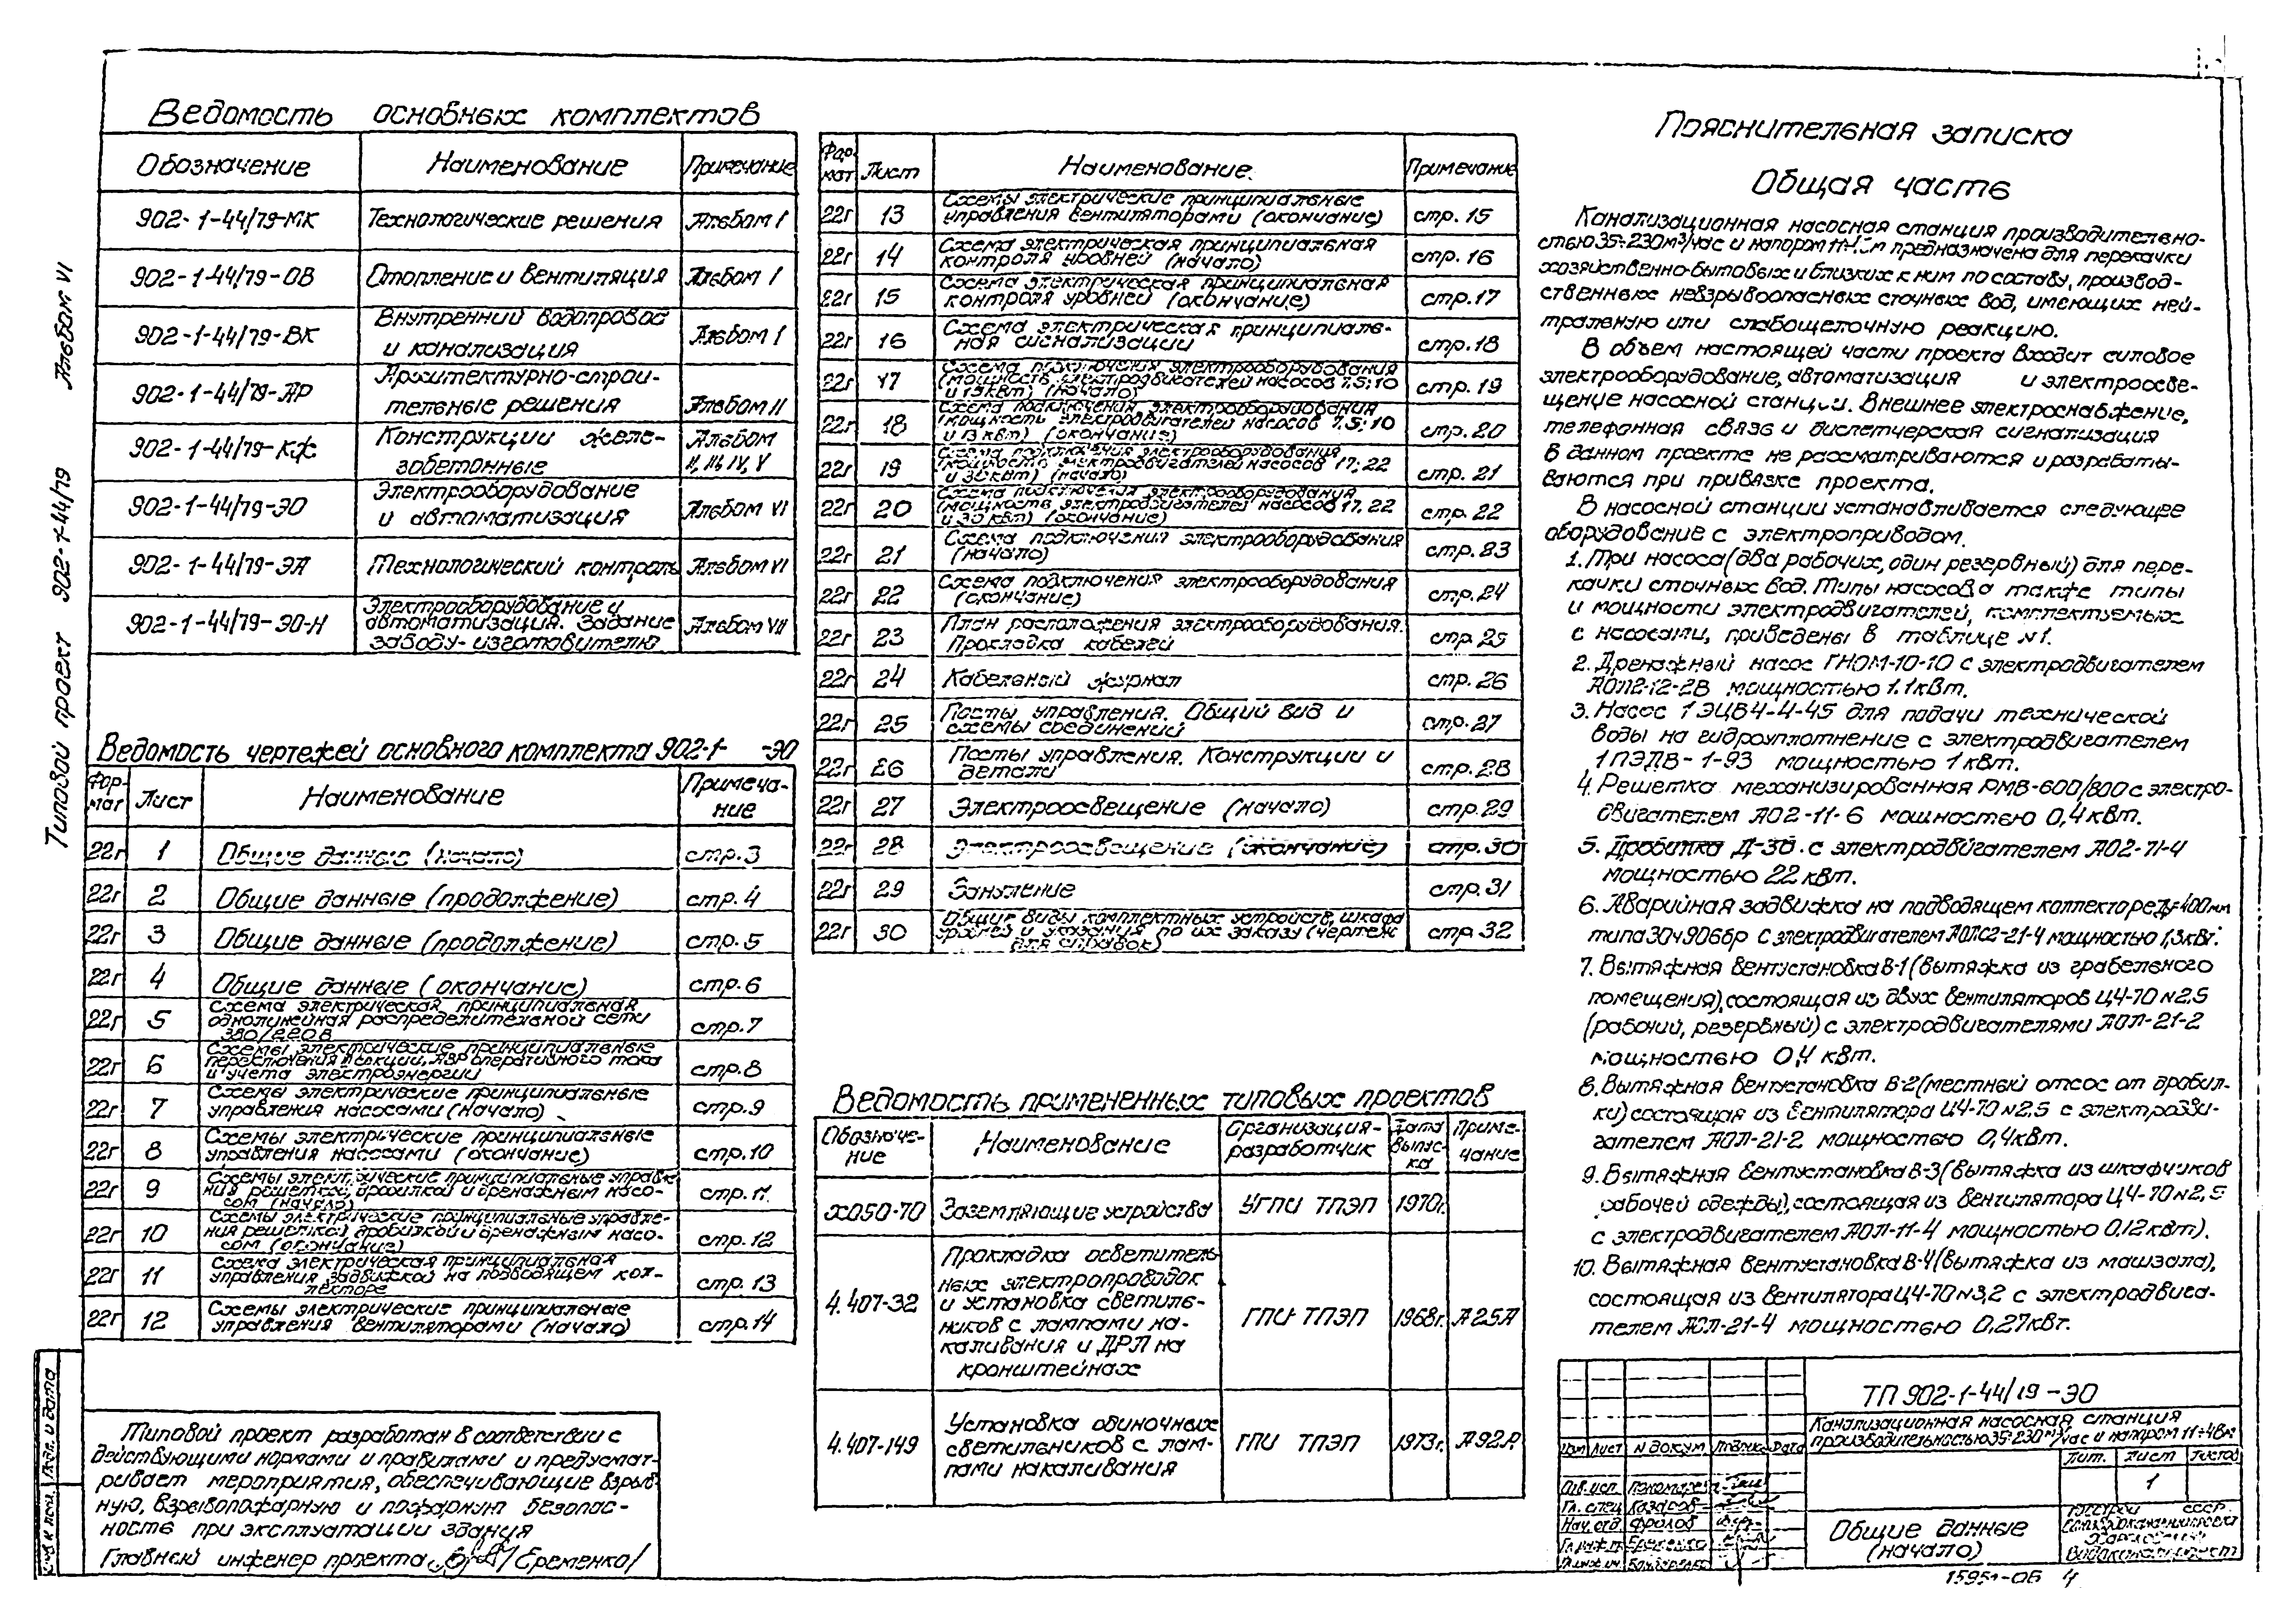 Альбом VI
Типовой проект 902-1-44/79
Ведомость основных комплектов
Обозначение Наименование Примечание
902-1-44/79-МК Технологические решения Альбом I
902-1-44/79-ОВ Отопление и вентиляция Альбом I
902-1-44/79-ВК Внутренний водопровод
и канализация Альбом I
902-1-44/79-АР Архитектурно-строи-
тельные решения Альбом II
902-1-44/79-КЖ Конструкции желе-
зобетонные Альбом
II, III, IV, V
902-1-44/79-ЭО Электрооборудование
и автоматизация Альбом VI
902-1-44/79-ЭА Технологический контроль Альбом VI
902-1-44/79-ЭО-Н Электрооборудование и
автоматизация. Задание
заводу-изготовителю Альбом VII
Ведомость чертежей основного комплекта 902-1- -ЭО
Фор-
мат Лист Наименование Примеча-
ние
22г 1 Общие данные (начало) стр. 3
22г 2 Общие данные (продолжение) стр. 4
22г 3 Общие данные (продолжение) стр. 5
22г 4 Общие данные (окончание) стр. 6
22г 5 Схема электрическая принципиальная
однолинейная распределительной сети
380/220В стр. 7
22г 6 Схемы электрические принципиальные
переключения секций, АВР оперативного тока
и учета электроэнергии стр. 8
22г 7 Схемы электрические принципиальные
управления насосами (начало) стр. 9
22г 8 Схемы электрические принципиальные
управления насосами (окончание) стр. 10
22г 9 Схемы электрические принципиальные управле-
ния решеткой, дробилкой и дренажным насо-
сом (начало) стр. 11
22г 10 Схемы электрические принципиальные управле-
ния решеткой, дробилкой и дренажным насо-
сом (окончание) стр. 12
22г 11 Схема электрическая принципиальная
управления задвижкой на подводящем кол-
лекторе стр. 13
22г 12 Схемы электрические принципиальные
управления вентиляторами (начало) стр. 14
Типовой проект разработан в соответствии с
действующими нормами и правилами и предусмат-
ривает мероприятия, обеспечивающие взрыв-
ную, взрывопожарную и пожарную безопас-
ность при эксплуатации здания
Главный инженер проекта /Еременко/
Подп. и дата
Фор-
мат Лист Наименование Примечание
22г 13 Схемы электрические принципиальные
управления вентиляторами (окончание) стр. 15
22г 14 Схема электрическая принципиальная
контроля уровней (начало) стр. 16
22г 15 Схема электрическая принципиальная
контроля уровней (окончание) стр. 17
22г 16 Схема электрическая принципиаль-
ная сигнализации стр. 18
22г 17 Схема подключения электрооборудования
(мощность электродвигателей насосов 7.5; 10
и 13 кВт) (начало) стр. 19
22г 18 Схема подключения электрооборудования
(мощность электродвигателей насосов 7.5; 10
и 13 кВт) (окончание) стр. 20
22г 19 Схема подключения электрооборудования
(мощность электродвигателей насосов 17; 22
и 30 кВт) (начало) стр. 21
22г 20 Схема подключения электрооборудования
(мощность электродвигателей насосов 17, 22
и 30 кВт) (окончание) стр. 22
22г 21 Схема подключения электрооборудования
(начало) стр. 23
22г 22 Схема подключения электрооборудования
(окончание) стр. 24
22г 23 План расположения электрооборудования.
Прокладка кабелей стр. 25
22г 24 Кабельный журнал стр. 26
22г 25 Посты управления. Общий вид и
схемы соединений стр. 27
22г 26 Посты управления. Конструкции и
детали стр. 28
22г 27 Электроосвещение (начало) стр. 29
22г 28 Электроосвещение (окончание) стр. 30
22г 29 Зануление стр. 31
22г 30 Общие виды комплектных устройств, шкафа
уровней и указания по их заказу (чертеж
для справок) стр 32
Ведомость примененных типовых проектов
Обозначе-
ние Наименование Организация-
разработчик Дата
выпус-
ка Приме-
чание
х050-70 Заземляющие устройства УГПИ ТПЭП 1970г.
4.407-32 Прокладка осветитель
ных электропроводок
и установка светиль-
ников с лампами на-
каливания и ДРЛ на
кронштейнах ГПИ ТПЭП 1968г. А25А
4.407-149 Установка одиночных
светильников с лам-
пами накаливания ГПИ ТПЭП 1973г. А92А
Пояснительная записка
Общая часть
Канализационная насосная станция производительно-
стью 35÷230м³/час и напором предназначена для перекачки
хозяйственно-бытовых и близких к ним по составу, производ-
ственных невзрывоопасных сточных вод, имеющих ней-
тральную или слабощелочную реакцию.
В объем настоящей части проекта входит силовое
электрооборудование, автоматизация и электроосве-
щение насосной станции. Внешнее электроснабжение,
телефонная связь и диспетчерская сигнализация
в данном проекте не рассматриваются и разрабаты-
ваются при привязке проекта.
В насосной станции устанавливается следующее
оборудование с электроприводом.
1. Три насоса (два рабочих, один резервный) для пере-
качки сточных вод. Типы насосов а также типы
и мощности электродвигателей, комплектуемых
с насосами, приведены в таблице №1.
2. Дренажный насос ГНОМ-10-10 с электродвигателем
АОЛ2-12-2В мощностью 1.1кВт.
3. Насос 1ЭЦВ4-4-45 для подачи технической
воды на гидроуплотнение с электродвигателем
1ПЭДВ-1-93 мощностью 1 кВт.
4. Решетка механизированная РМВ-600/800 с электро-
двигателем АО2-11-6 мощностью 0,4 кВт.
5. Дробилка Д-3б. с электродвигателем АО2-71-4
мощностью 22 кВт.
6. Аварийная задвижка на подводящем коллекторе Ду=400мм
типа 30ч906бр с электродвигателем АОЛС2-21-4 мощностью 1,3кВт.
7. Вытяжная вентустановка В-1 (вытяжка из грабельного
помещения), состоящая из двух вентиляторов Ц4-70 №2,5
(рабочий, резервный) с электродвигателями АОЛ-21-2
мощностью 0,4 кВт.
8. Вытяжная вентустановка В-2 (местный отсос от дробил-
ки) состоящая из вентилятора Ц4-70 №2.5 с электродви-
гателем АОЛ-21-2 мощностью 0,4кВт.
9. Вытяжная вентустановка В-3 (вытяжка из шкафчиков
рабочей одежды), состоящая из вентилятора Ц4-70 №2,5
с электродвигателем АОЛ-11-4 мощностью 0,12 кВт).
10. Вытяжная вентустановка В-4 (вытяжка из машзала),
состоящая из вентилятора Ц4-70 №3,2 с электродвига-
телем АОЛ-21-4 мощностью 0,27кВт.
ТП 902-1-44/79-ЭО
Канализационная насосная станция
производительностью 35÷230 м³/час и напором
Изм Лист № докум Подпись Дата
Лит. Лист Листов
1
Отв.исп. Пономарева
Гл. спец Казаров
Нач. отд. Фролов
Гл.инж.п Еременко
Общие данные
(начало)
Госстрой СССР
Союзводоканалпроект
Харьковский
Водоканалпроект
15951-06 4